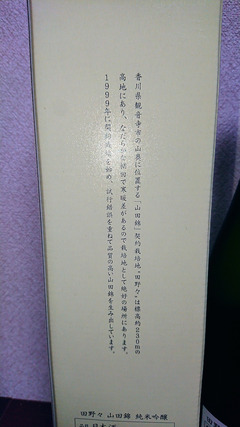 香川県観音寺市の山奥に位置する「山田錦」契約栽培地“田野々”は標高約230mの
高地にあり、なだらかな傾斜で寒暖差があるので栽培地として絶好の場所にあります。
1999年に契約栽培を始め、試行錯誤を重ねて品質の高い山田錦を生み出しています。
田野々 山田錦 純米吟醸
日本酒